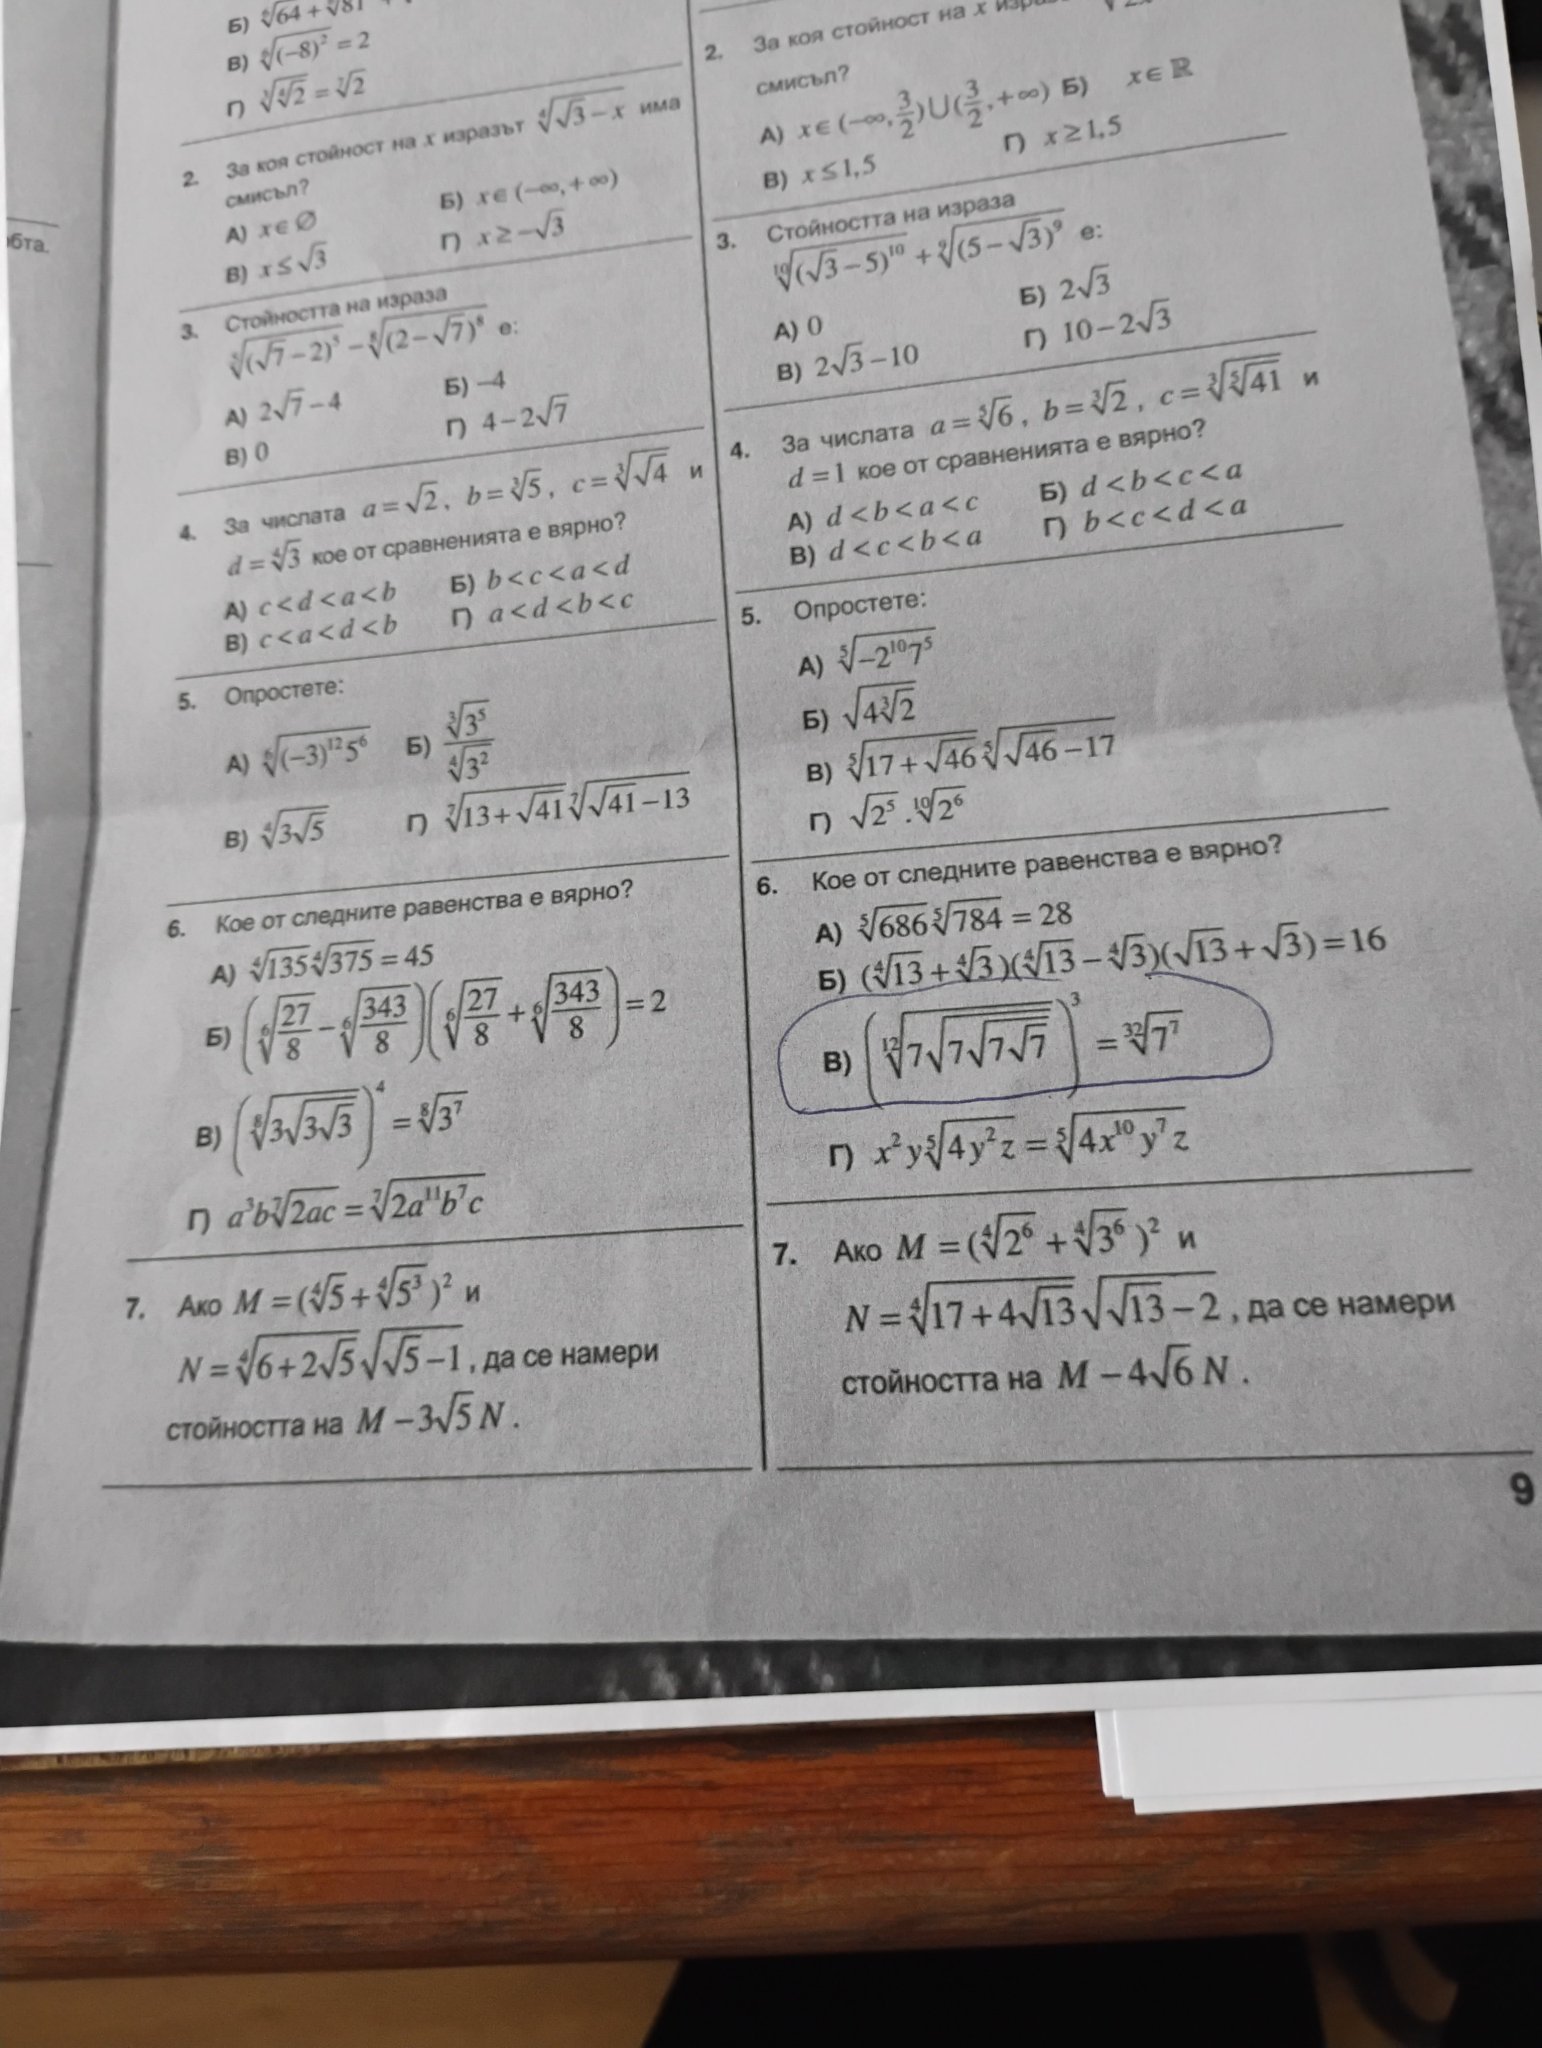 Б) \sqrt[6]{64} + \sqrt[4]{81}
В) \sqrt[6]{(-8)^2} = 2
Г) \sqrt[3]{\sqrt[4]{2}} = \sqrt[7]{2}
2. За коя стойност на x изразът \sqrt[4]{\sqrt{3}-x} има
смисъл?
А) x ∈ ∅ Б) x ∈ (−∞, +∞)
В) x ≤ √3 Г) x ≥ −√3
3. Стойността на израза
\sqrt[5]{(\sqrt{7}-2)^5} − \sqrt[8]{(2-\sqrt{7})^8} е:
А) 2√7 − 4 Б) −4
В) 0 Г) 4 − 2√7
4. За числата a = √2, b = \sqrt[3]{5}, c = \sqrt[3]{\sqrt{4}} и
d = \sqrt[4]{3} кое от сравненията е вярно?
А) c < d < a < b Б) b < c < a < d
В) c < a < d < b Г) a < d < b < c
5. Опростете:
А) \sqrt[6]{(-3)^{12}5^6} Б) \frac{\sqrt[3]{3^5}}{\sqrt[4]{3^2}}
В) \sqrt[4]{3\sqrt{5}} Г) \sqrt[7]{13+\sqrt{41}}\sqrt[7]{\sqrt{41}-13}
6. Кое от следните равенства е вярно?
А) \sqrt[4]{135}\sqrt[4]{375} = 45
Б) (\sqrt[6]{\frac{27}{8}} − \sqrt[6]{\frac{343}{8}})(\sqrt[6]{\frac{27}{8}} + \sqrt[6]{\frac{343}{8}}) = 2
В) (\sqrt[8]{3\sqrt{3\sqrt{3}}})^4 = \sqrt[8]{3^7}
Г) a^3b\sqrt[7]{2ac} = \sqrt[7]{2a^{11}b^7c}
7. Ако M = (\sqrt[4]{5} + \sqrt[4]{5^3})^2 и
N = \sqrt[4]{6+2\sqrt{5}}\sqrt{\sqrt{5}-1}, да се намери
стойността на M − 3√5 N.
2. За коя стойност на x
смисъл?
А) x ∈ (−∞, \frac{3}{2}) ∪ (\frac{3}{2}, +∞) Б) x ∈ ℝ
В) x ≤ 1,5 Г) x ≥ 1,5
3. Стойността на израза
\sqrt[10]{(\sqrt{3}-5)^{10}} + \sqrt[9]{(5-\sqrt{3})^9} е:
А) 0 Б) 2√3
В) 2√3 − 10 Г) 10 − 2√3
4. За числата a = \sqrt[5]{6}, b = \sqrt[3]{2}, c = \sqrt[3]{\sqrt[5]{41}} и
d = 1 кое от сравненията е вярно?
А) d < b < a < c Б) d < b < c < a
В) d < c < b < a Г) b < c < d < a
5. Опростете:
А) \sqrt[5]{-2^{10}7^5}
Б) \sqrt{4\sqrt[3]{2}}
В) \sqrt[5]{17+\sqrt{46}}\sqrt[5]{\sqrt{46}-17}
Г) \sqrt{2^5}.\sqrt[10]{2^6}
6. Кое от следните равенства е вярно?
А) \sqrt[5]{686}\sqrt[5]{784} = 28
Б) (\sqrt[4]{13} + \sqrt[4]{3})(\sqrt[4]{13} − \sqrt[4]{3})(√13 + √3) = 16
В) (\sqrt[12]{7\sqrt{7\sqrt{7\sqrt{7}}}})^3 = \sqrt[32]{7^7}
Г) x^2y\sqrt[5]{4y^2z} = \sqrt[5]{4x^{10}y^7z}
7. Ако M = (\sqrt[4]{2^6} + \sqrt[4]{3^6})^2 и
N = \sqrt[4]{17+4\sqrt{13}}\sqrt{\sqrt{13}-2}, да се намери
стойността на M − 4√6 N.
9